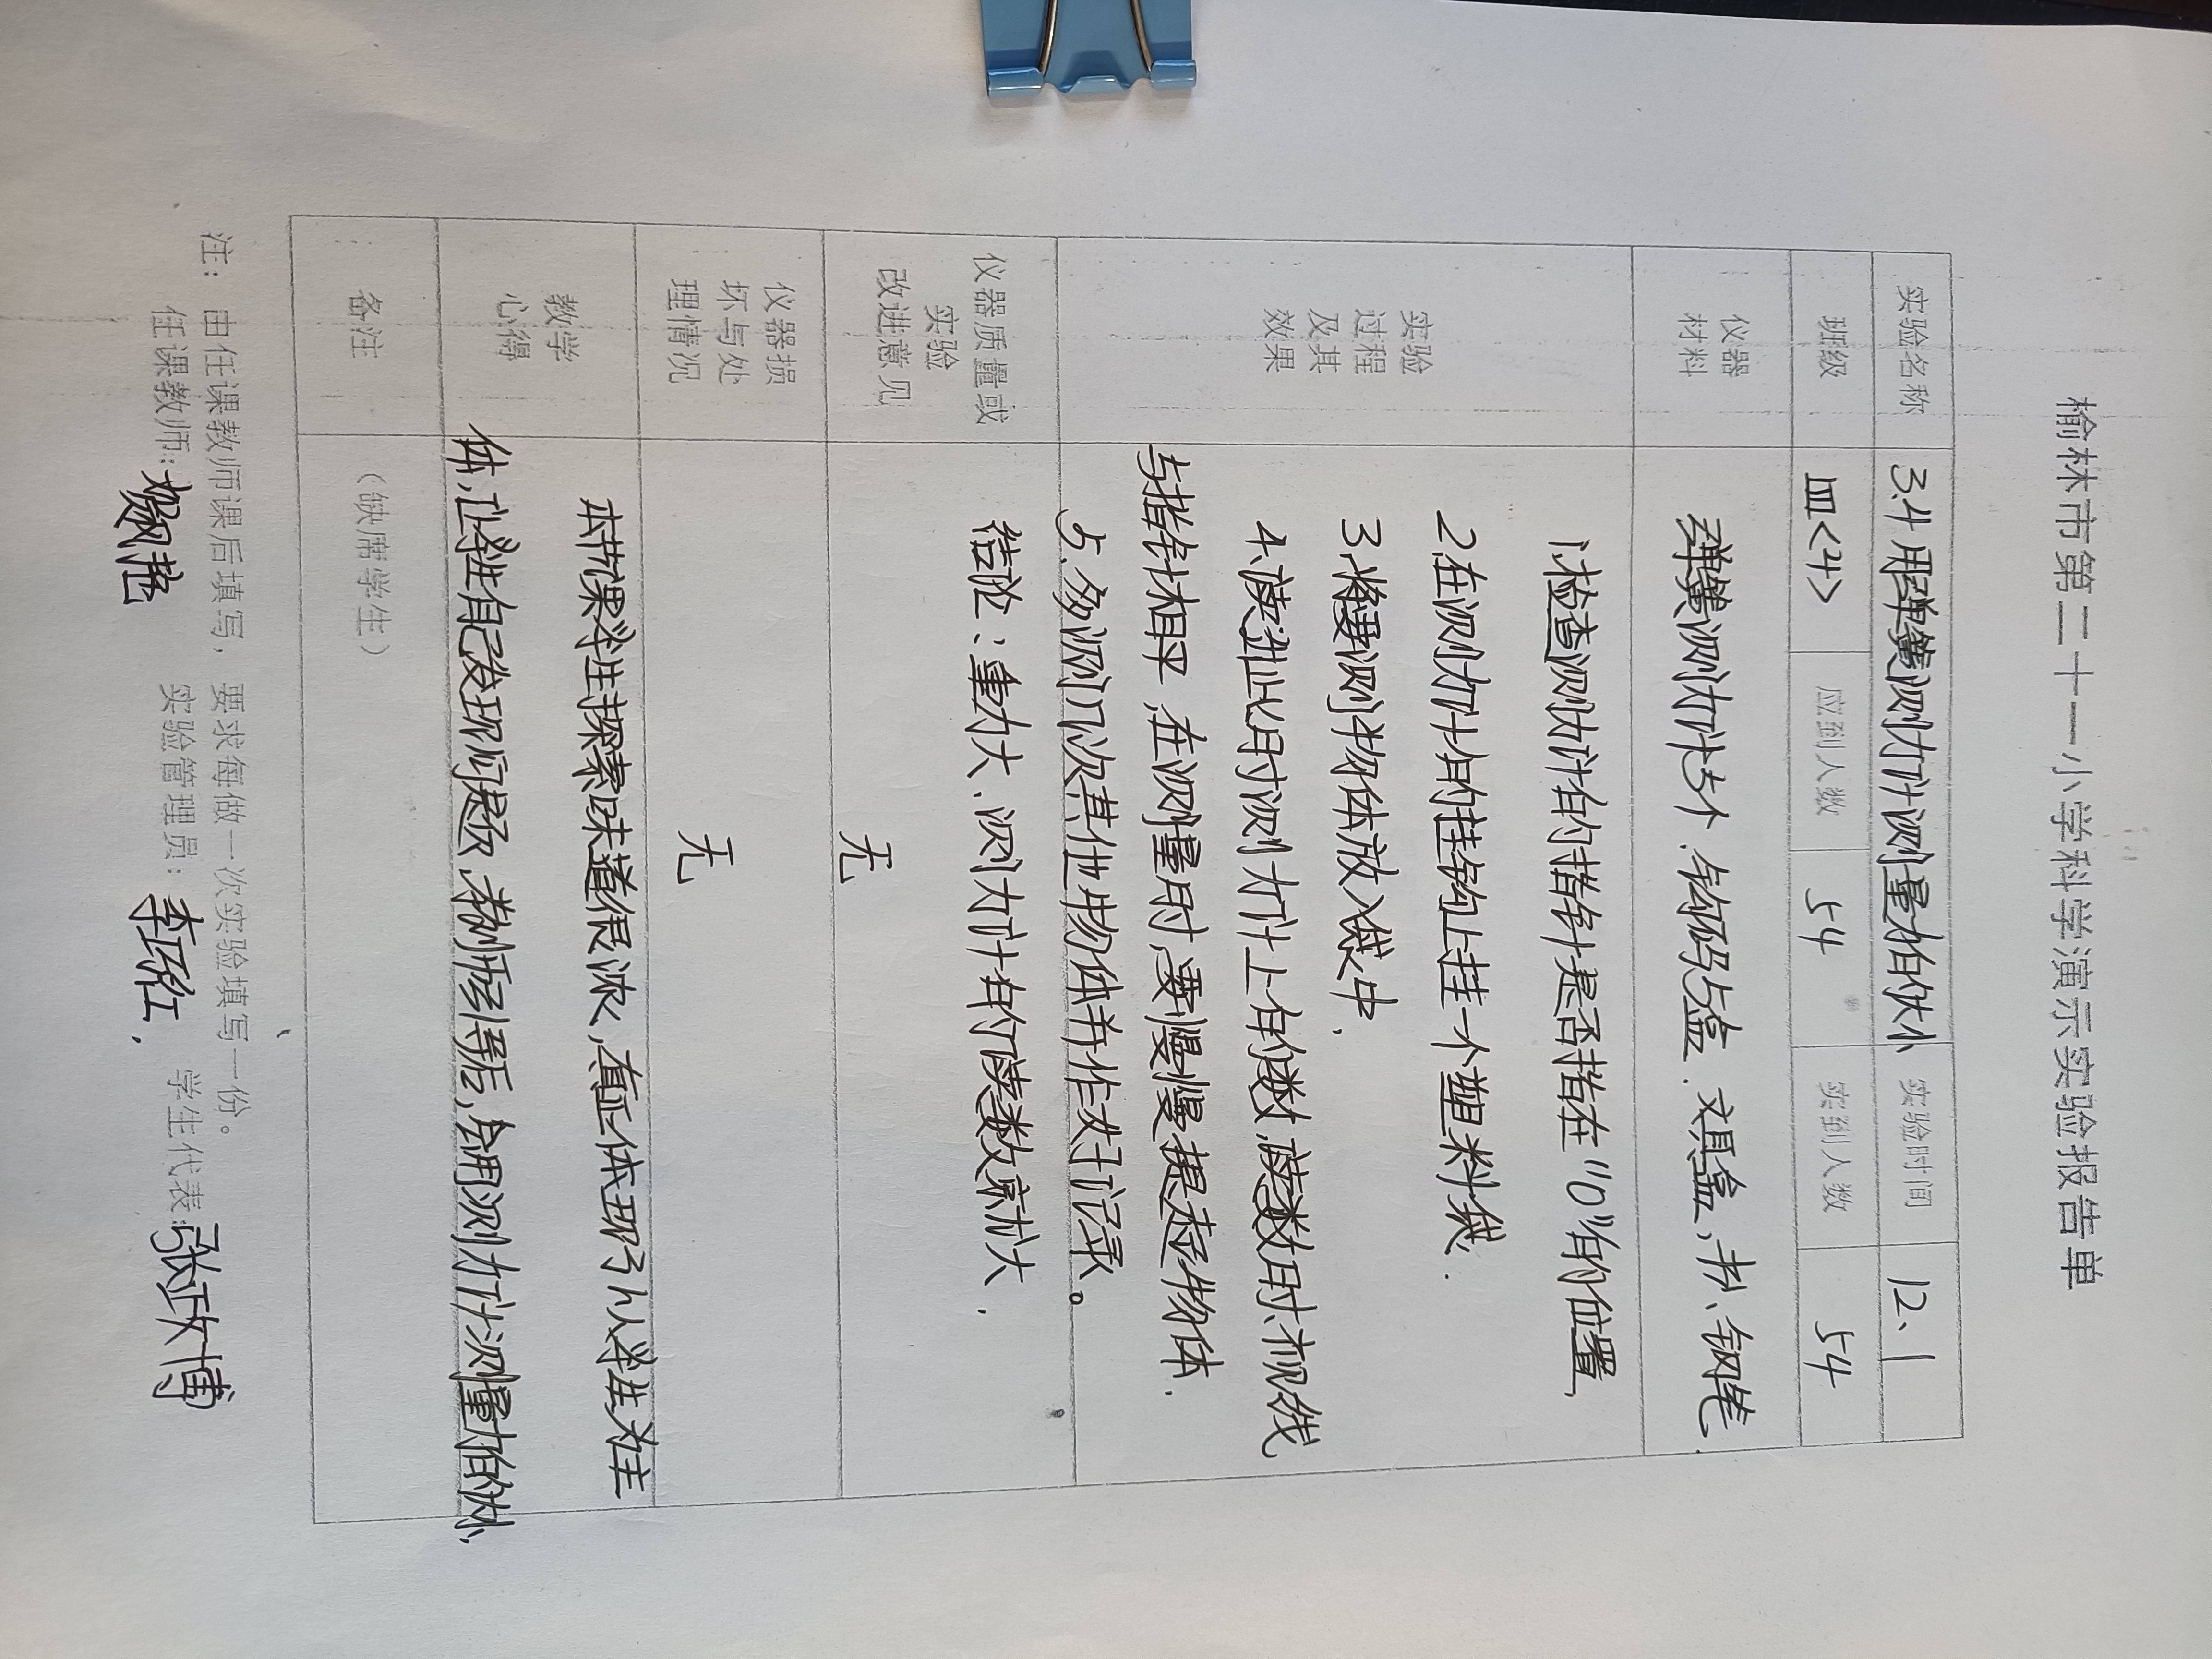 榆林市第二十一小学科学演示实验报告单
实验名称 3.4 用弹簧测力计测量力的大小 实验时间 12、1
班级 四<4> 应到人数 54 实到人数 54
仪器材料 弹簧测力计5个、钩码5盒、文具盒、书、钢笔、
实验过程及其效果
1、检查测力计有的指针是否指在"0"的位置、
2、在测力计的挂钩上挂一个塑料袋、
3、将要测的物体放入袋中、
4、读出此时测力计上的数、读数时、视线
与指针相平、在测量时、要慢慢提起物体、
5、多测几次其他物体并作好记录。
结论：重力大、测力计的读数就大、
仪器质量或实验改进意见 无
仪器损坏与处理情况 无
教学心得
本节课学生探索味道很浓、真正体现了以学生为主
体、让学生自己发现问题、教师引导后、会用测力计测量力的大小、
备注 （缺席学生）
注：由任课教师课后填写，要求每做一次实验填写一份。
任课教师： 实验管理员：李 学生代表：张政博